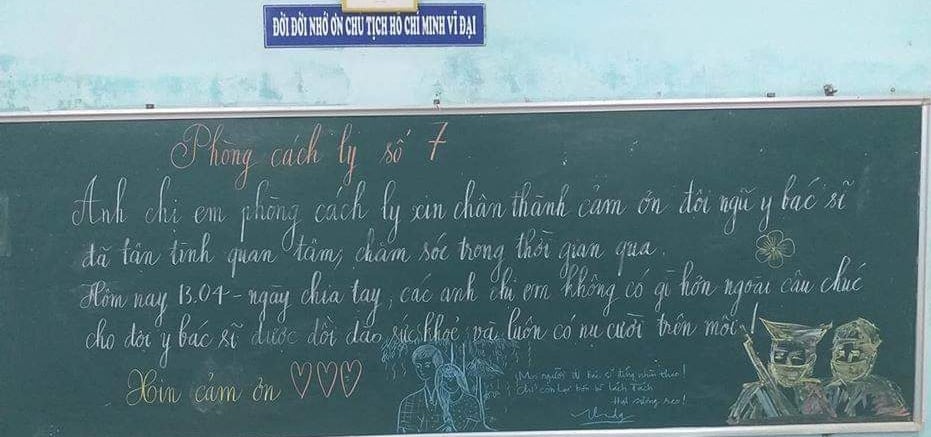 ĐỜI ĐỜI NHỚ ƠN CHỦ TỊCH HỒ CHÍ MINH VĨ ĐẠI
Phòng cách ly số 7
Anh chị em phòng cách ly xin chân thành cảm ơn đội ngũ y bác sĩ
đã tận tình quan tâm, chăm sóc trong thời gian qua.
Hôm nay 13.04 - ngày chia tay, các anh chị em không có gì hơn ngoài câu chúc
cho đội y bác sĩ được dồi dào sức khoẻ và luôn có nụ cười trên môi!
Xin cảm ơn
Mọi người đi bác sĩ đứng nhìn theo!
Chỉ còn lại bốn bề tách tách